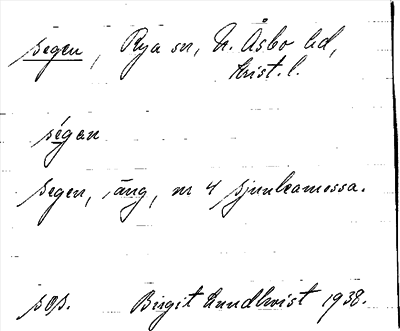 segen, Rya sn, N. Åsbo hd,
Krist. l.
ségan
segen, äng, nr 4 Sjunkamossa.
sƨs. Birgit Lundkvist 1938.